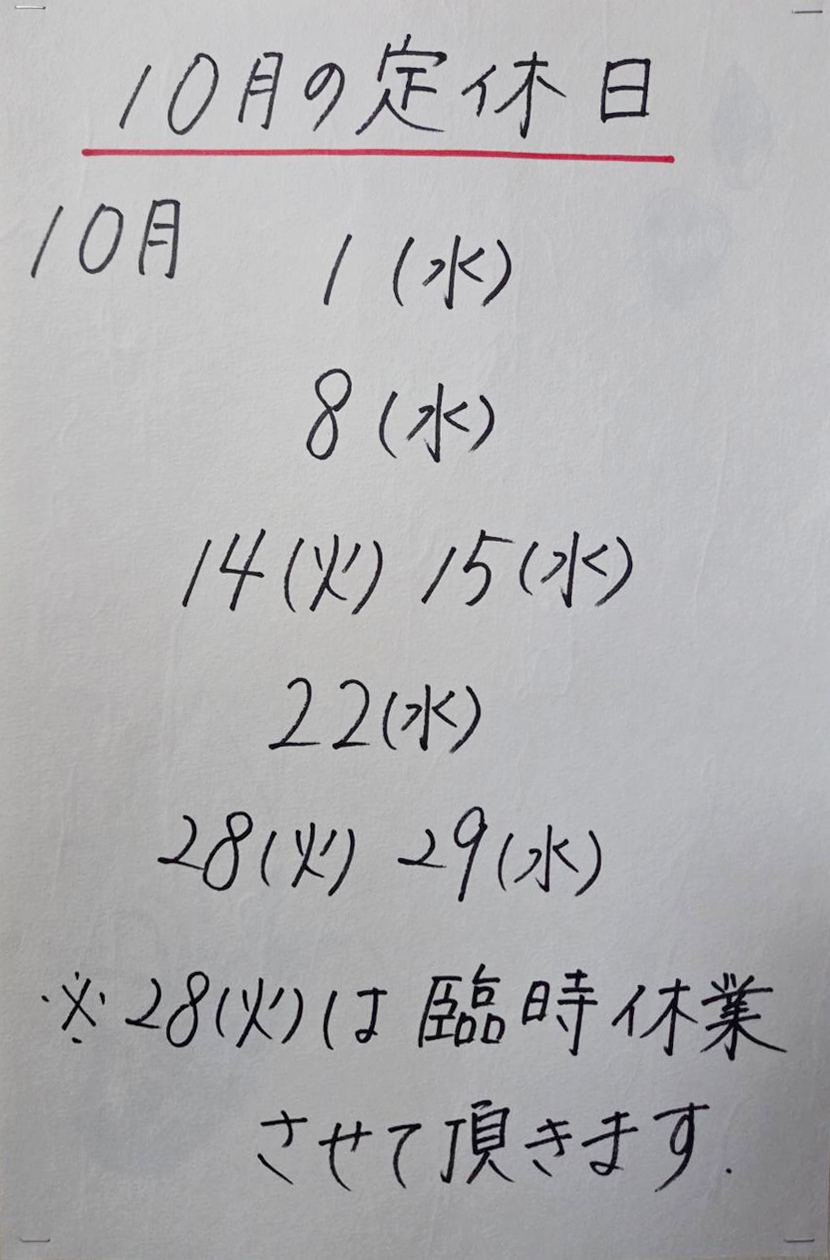 10月の定休日
10月 1(水)
8(水)
14(火) 15(水)
22(水)
28(火) 29(水)
※28(火)は臨時休業
させて頂きます.